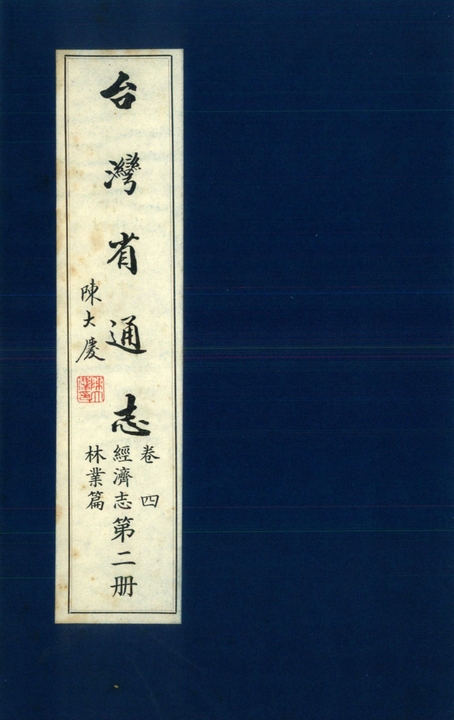 台灣省通志
陳大慶
卷四
經濟志
林業篇
第二册